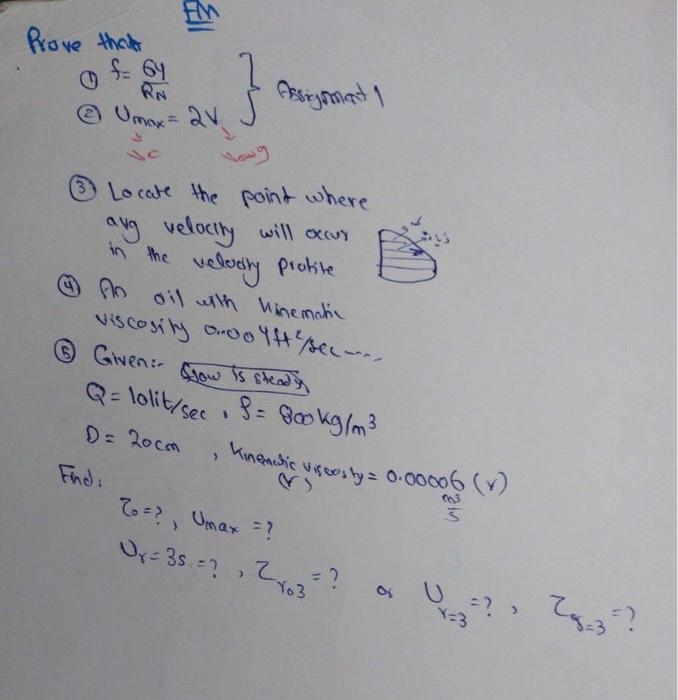 FM
Prove that
① f = 64
RN
② Umax = 2V
Assignment 1
Vc
Vavg
③ Locate the point where
avg velocity will occur
in the velocity profile
④ An oil with kinematic
viscosity 0.004ft²/sec ----
⑤ Given:- flow is steady
Q = 10lit/sec, ρ = 800kg/m³
D = 20cm, kinematic viscosity = 0.00006 (ν)
(ν)
m³
s
Find:
τo = ?, Umax = ?
or Ur=3 = ?